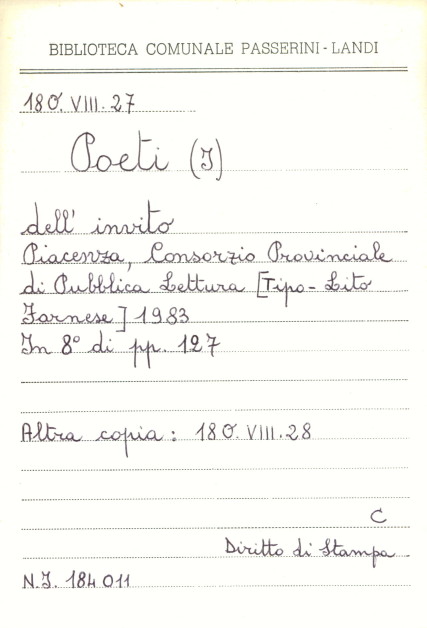 BIBLIOTECA COMUNALE PASSERINI-LANDI
180. VIII. 27
Poeti (I)
dell' invito
Piacenza, Consorzio Provinciale
di Pubblica Lettura [Tipo-Lito
Farnese] 1983
In 8° di pp. 127
Altra copia: 180. VIII. 28
C
Diritto di Stampa
N.I. 184011